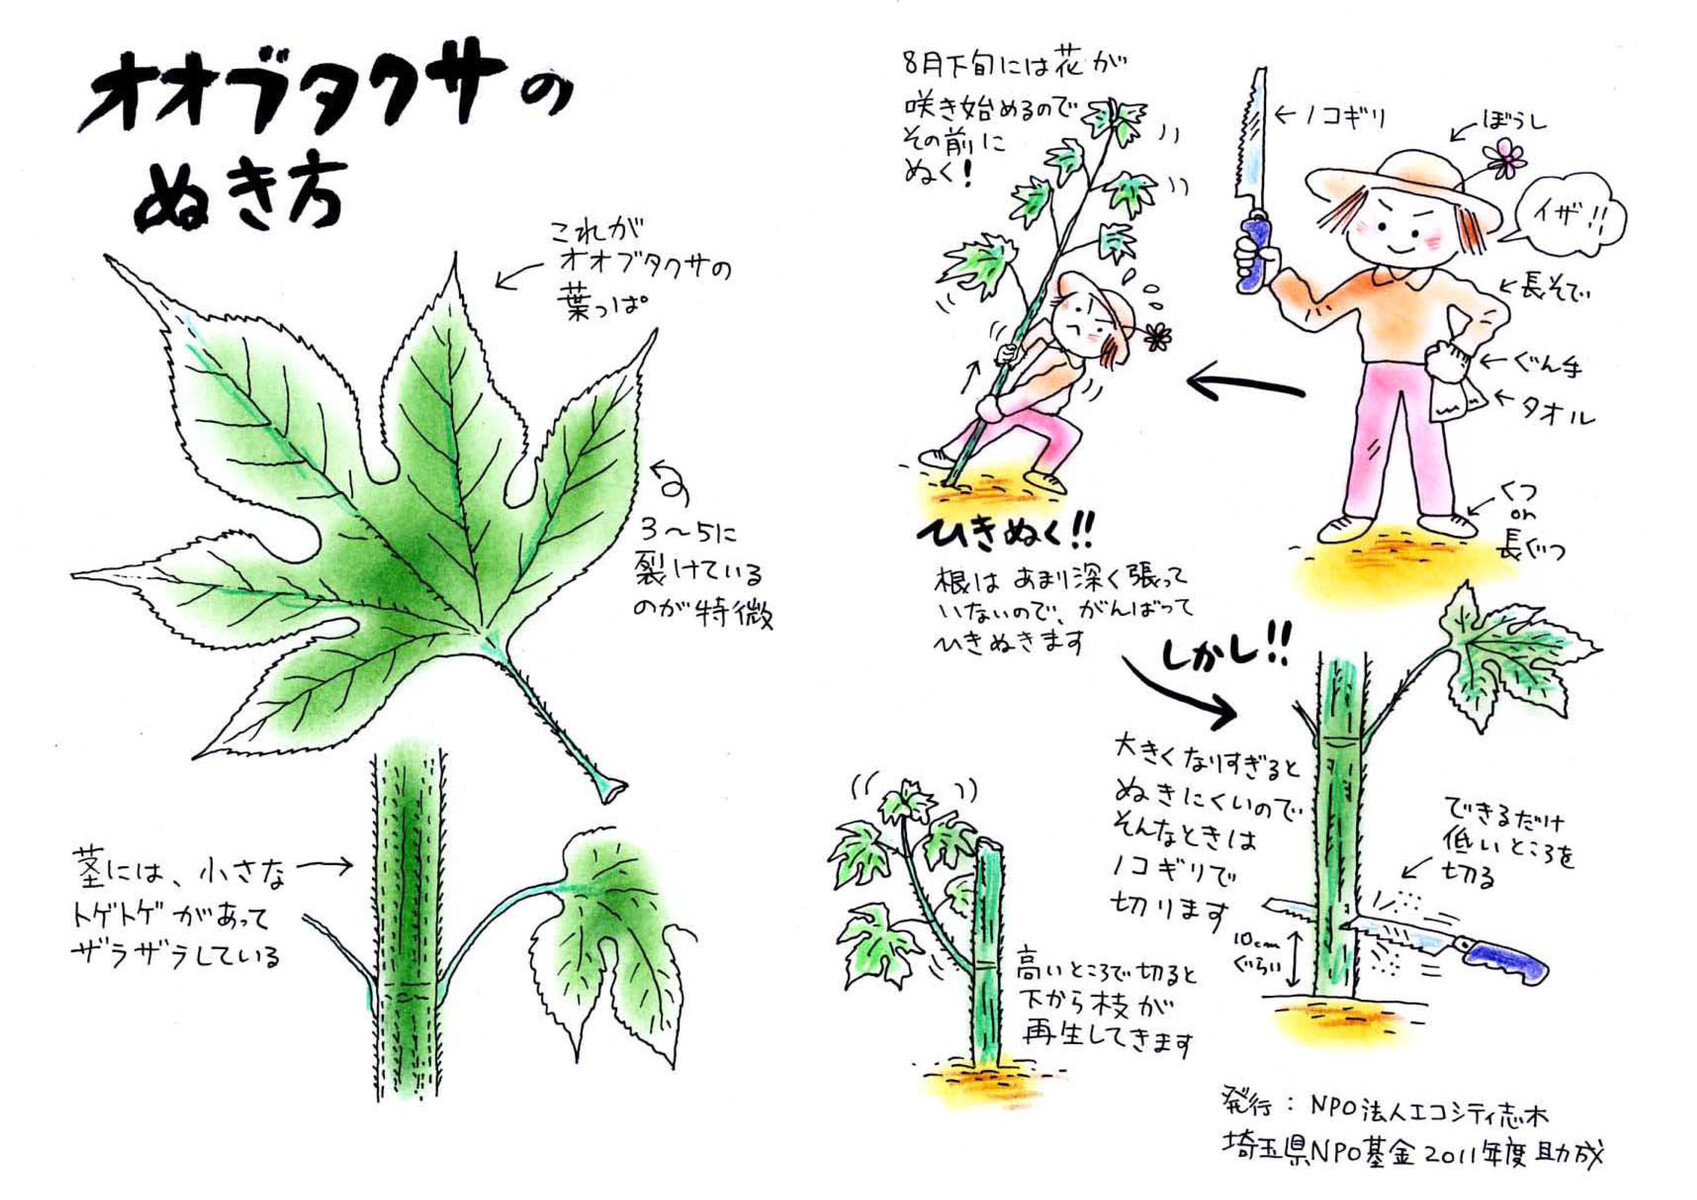 オオブタクサの
ぬき方
これが
オオブタクサの
葉っぱ
3～5に
裂けている
のが特徴
茎には、小さな
トゲトゲがあって
ザラザラしている
8月下旬には花が
咲き始めるので
その前に
ぬく!
ノコギリ
ぼうし
イザ!!
長そで
ぐん手
タオル
くつ
or
長ぐつ
ひきぬく!!
根はあまり深く張って
いないので、がんばって
ひきぬきます
しかし!!
大きくなりすぎると
ぬきにくいので
そんなときは
ノコギリで
切ります
できるだけ
低いところを
切る
10cm
ぐらい
高いところで切ると
下から枝が
再生してきます
発行：NPO法人エコシティ志木
埼玉県NPO基金2011年度助成